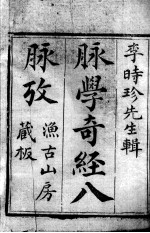 李時珍先生輯
脈學奇經八
脈攷
漁古山房
藏板